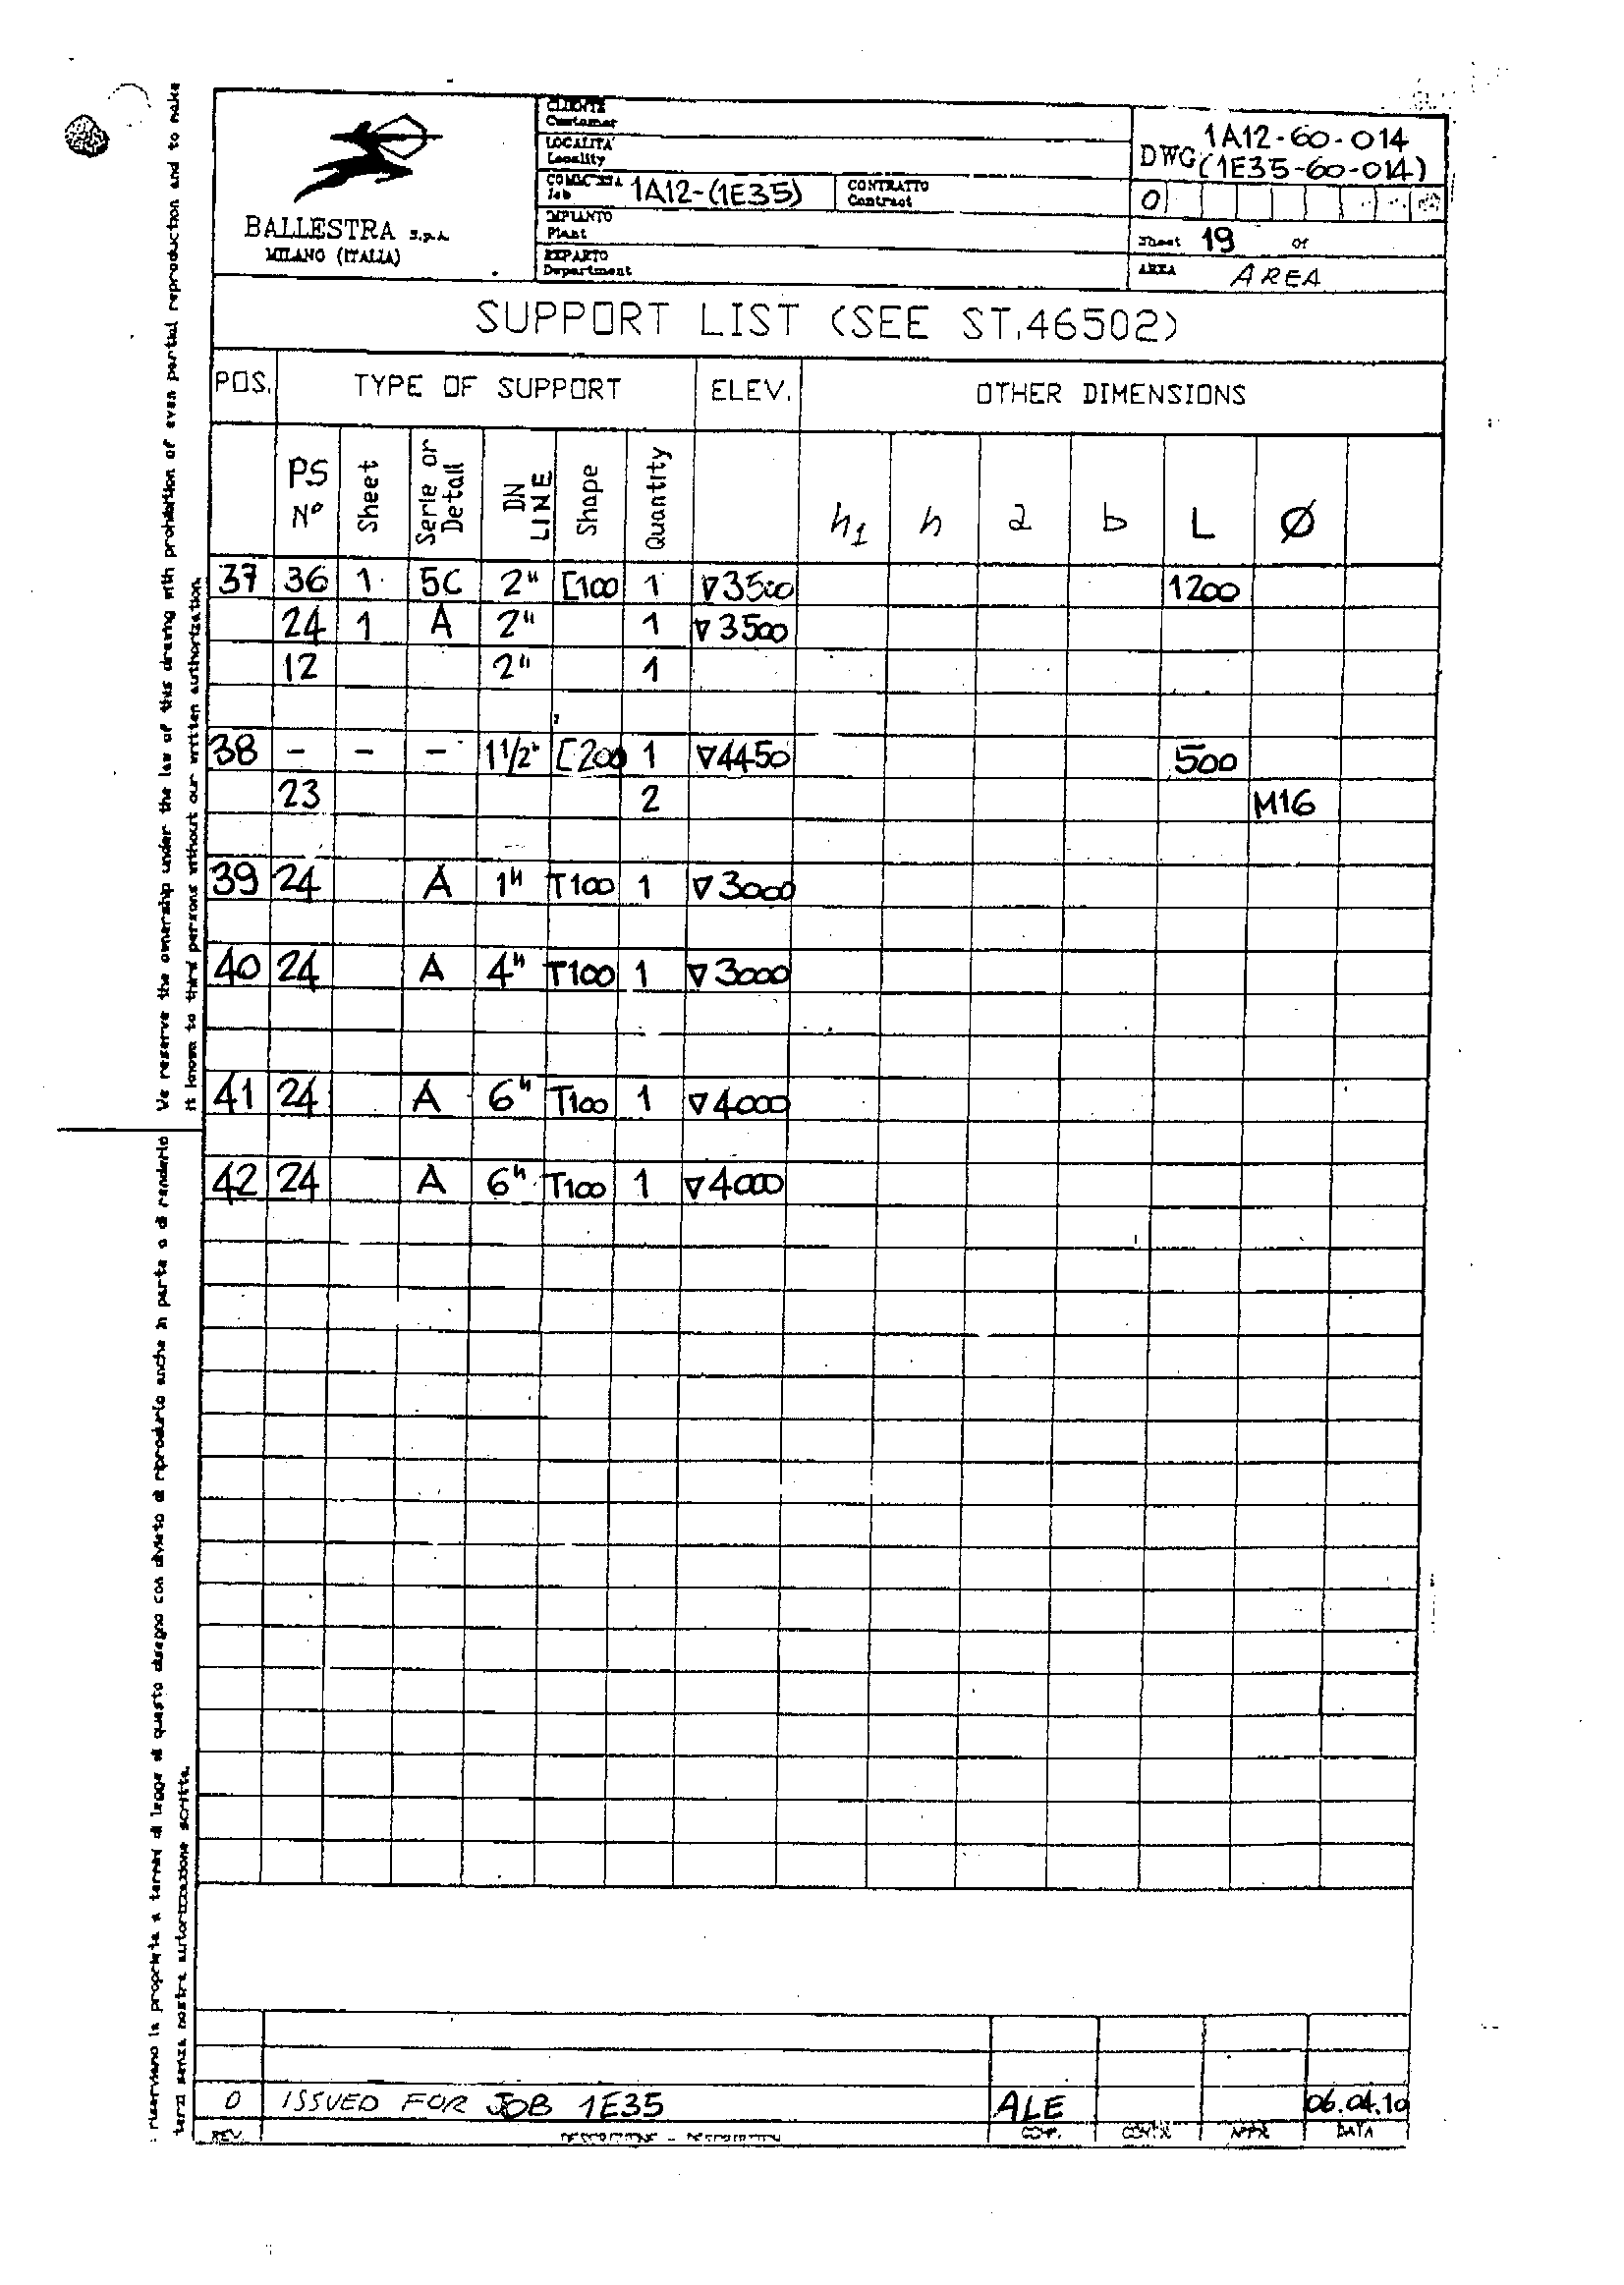 CLIENTE
Customer
LOCALITA'
Locality
COMMESSA
Job
1A12-(1E35)
CONTRATTO
Contract
IMPIANTO
Plant
REPARTO
Department
BALLESTRA S.p.A.
MILANO (ITALIA)
1A12-60-014
DWG (1E35-60-014)
0
Sheet 19 of
AREA AREA
SUPPORT LIST (SEE ST.46502)
POS. TYPE OF SUPPORT ELEV. OTHER DIMENSIONS
PS N° Sheet Serie or Detail DN LINE Shape Quantity h1 h a b L Ø
37 36 1 5C 2" [100 1 ∇3500 1200
24 1 A 2" 1 ∇3500
12 2" 1
38 - - - 1 1/2" [200 1 ∇4450 500
23 2 M16
39 24 A 1" T100 1 ∇3000
40 24 A 4" T100 1 ∇3000
41 24 A 6" T100 1 ∇4000
42 24 A 6" T100 1 ∇4000
0 ISSUED FOR JOB 1E35 ALE 06.04.10
REV. DESCRIZIONE - DESCRIPTION COMP. CONTR. APPR. DATA
We reserve the ownership under the law of this drawing with prohibition of even partial reproduction and to make
it known to third persons without our written authorization.
riserviamo la proprieta a termini di legge di questo disegno con divieto di riprodurlo anche in parte o di renderlo
terzi senza nostra autorizzazione scritta.